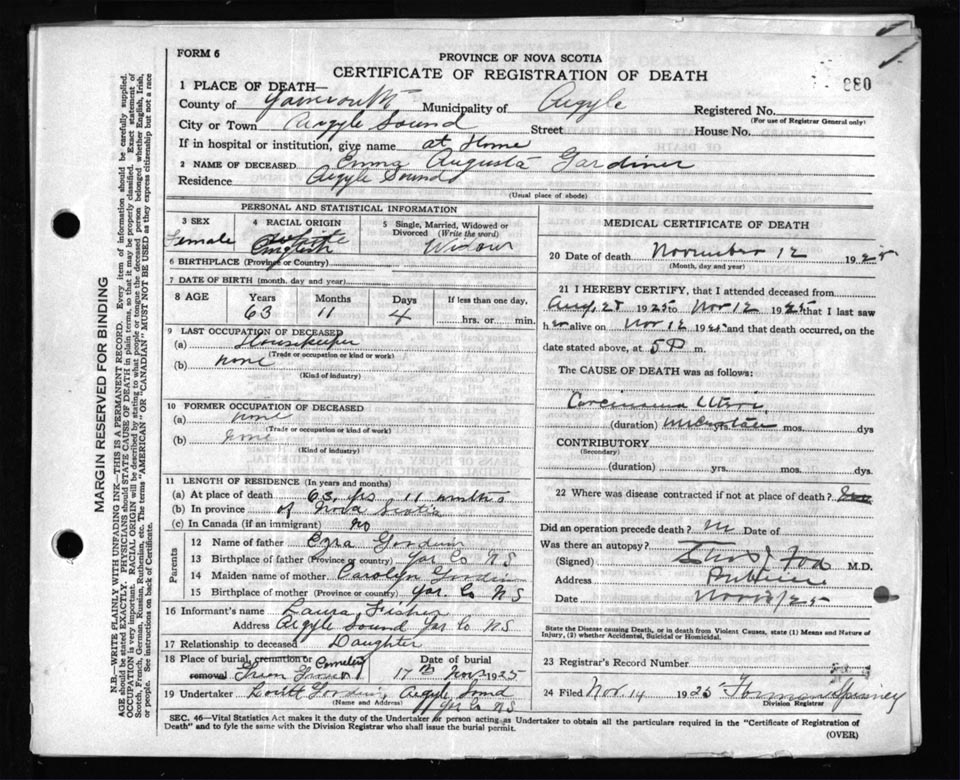 FORM 6
PROVINCE OF NOVA SCOTIA
CERTIFICATE OF REGISTRATION OF DEATH
880
1 PLACE OF DEATH—
County of Yarmouth Municipality of Argyle Registered No.
(For use of Registrar General only)
City or Town Argyle Sound Street House No.
If in hospital or institution, give name at Home
2 NAME OF DECEASED Emma Augusta Gardiner
Residence Argyle Sound
(Usual place of abode)
PERSONAL AND STATISTICAL INFORMATION
3 SEX Female
4 RACIAL ORIGIN White English
5 Single, Married, Widowed or Divorced (Write the word) Widow
6 BIRTHPLACE (Province or Country)
7 DATE OF BIRTH (month, day and year)
8 AGE Years Months Days If less than one day,
63 11 4 hrs. or min.
9 LAST OCCUPATION OF DECEASED
(a) Housekeeper
(Trade or occupation or kind or work)
(b) none
(Kind of industry)
10 FORMER OCCUPATION OF DECEASED
(a) none
(Trade or occupation or kind of work)
(b) none
(Kind of industry)
11 LENGTH OF RESIDENCE (In years and months)
(a) At place of death 63 yrs 11 months
(b) In province of Nova Scotia
(c) In Canada (if an immigrant) no
Parents
12 Name of father Ezra Goodwin
13 Birthplace of father (Province or country) Yar Co NS
14 Maiden name of mother Carolyn Goodwin
15 Birthplace of mother (Province or country) Yar Co NS
16 Informant's name Laura Fisher
Address Argyle Sound Yar Co NS
17 Relationship to deceased Daughter
18 Place of burial, cremation or removal Cemetery Date of burial
17th Nov 1925
19 Undertaker Lovitt Goodwin, Argyle Sound
(Name and Address) Yar Co NS
MEDICAL CERTIFICATE OF DEATH
20 Date of death November 12 1925
(Month, day and year)
21 I HEREBY CERTIFY, that I attended deceased from
Aug, 28 1925 to Nov 12 1925 that I last saw
her alive on Nov 12 1925 and that death occurred, on the
date stated above, at 5 P m.
The CAUSE OF DEATH was as follows:
Carcinoma Uteri
(duration) uncertain yrs. mos. dys
CONTRIBUTORY
(Secondary)
(duration) yrs. mos. dys.
22 Where was disease contracted if not at place of death?
Did an operation precede death? Date of
Was there an autopsy?
(Signed) Fox M.D.
Address Pubnico
Date Nov 13/25
State the Disease causing Death, or in death from Violent Causes, state (1) Means and Nature of
Injury, (2) whether Accidental, Suicidal or Homicidal.
23 Registrar's Record Number
24 Filed Nov. 14 1925 Spinney
Division Registrar
SEC. 46—Vital Statistics Act makes it the duty of the Undertaker or person acting as Undertaker to obtain all the particulars required in the "Certificate of Registration of
Death" and to fyle the same with the Division Registrar who shall issue the burial permit.
(OVER)
MARGIN RESERVED FOR BINDING
N.B.—WRITE PLAINLY WITH UNFADING INK—THIS IS A PERMANENT RECORD. Every item of information should be carefully supplied.
AGE should be stated EXACTLY. PHYSICIANS should STATE CAUSE OF DEATH in plain terms, so that it may be properly classified. Exact statement of
OCCUPATION is very important. RACIAL ORIGIN will be described by stating to what people or tongue the deceased person belonged whether English, Irish,
Scotch, French, German, Russian, Ruthenian, etc. The terms "AMERICAN" OR "CANADIAN" MUST NOT BE USED as they express citizenship but not a race
or people. See instructions on back of Certificate.